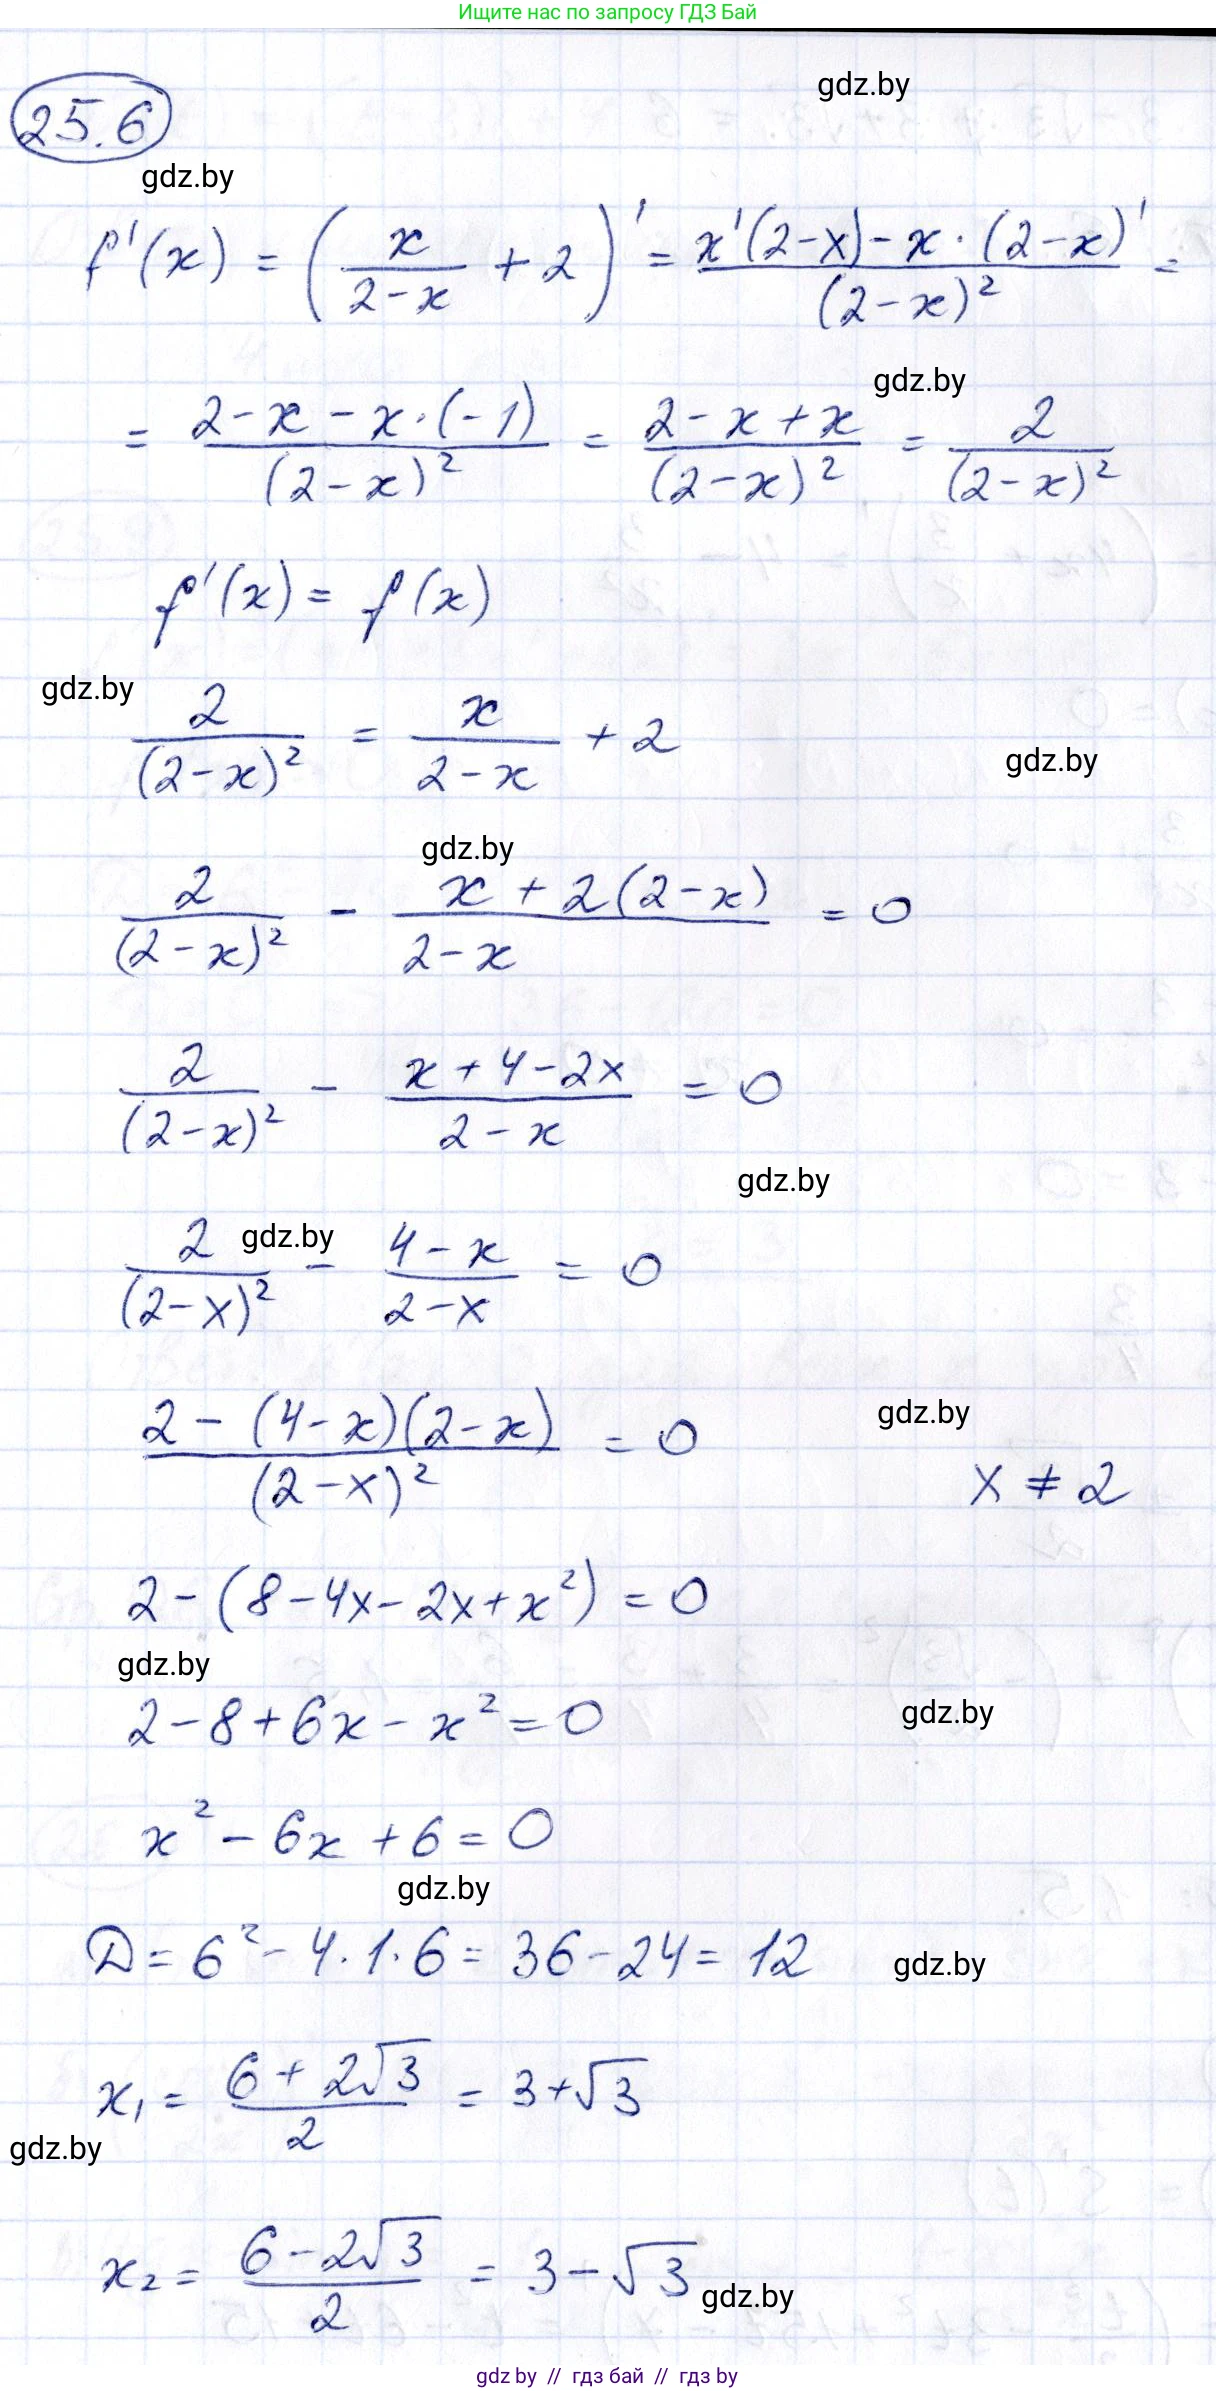 Ищите нас по запросу ГДЗ Бай
gdz.by
25.6
gdz.by
f'(x) = (x/(2-x) + 2)' = (x'(2-x) - x·(2-x)')/(2-x)² =
gdz.by
= (2-x-x·(-1))/(2-x)² = (2-x+x)/(2-x)² = 2/(2-x)²
f'(x) = f(x)
gdz.by
2/(2-x)² = x/(2-x) + 2
gdz.by
gdz.by
2/(2-x)² - (x+2(2-x))/(2-x) = 0
2/(2-x)² - (x+4-2x)/(2-x) = 0
gdz.by
gdz.by
2/(2-x)² - (4-x)/(2-x) = 0
gdz.by
(2-(4-x)(2-x))/(2-x)² = 0 x ≠ 2
2-(8-4x-2x+x²) = 0
gdz.by
gdz.by
2-8+6x-x² = 0
x²-6x+6 = 0
gdz.by
D = 6²-4·1·6 = 36-24 = 12
gdz.by
x₁ = (6+2√3)/2 = 3+√3
gdz.by
x₂ = (6-2√3)/2 = 3-√3
gdz.by
gdz by // гдз бай // gdz by